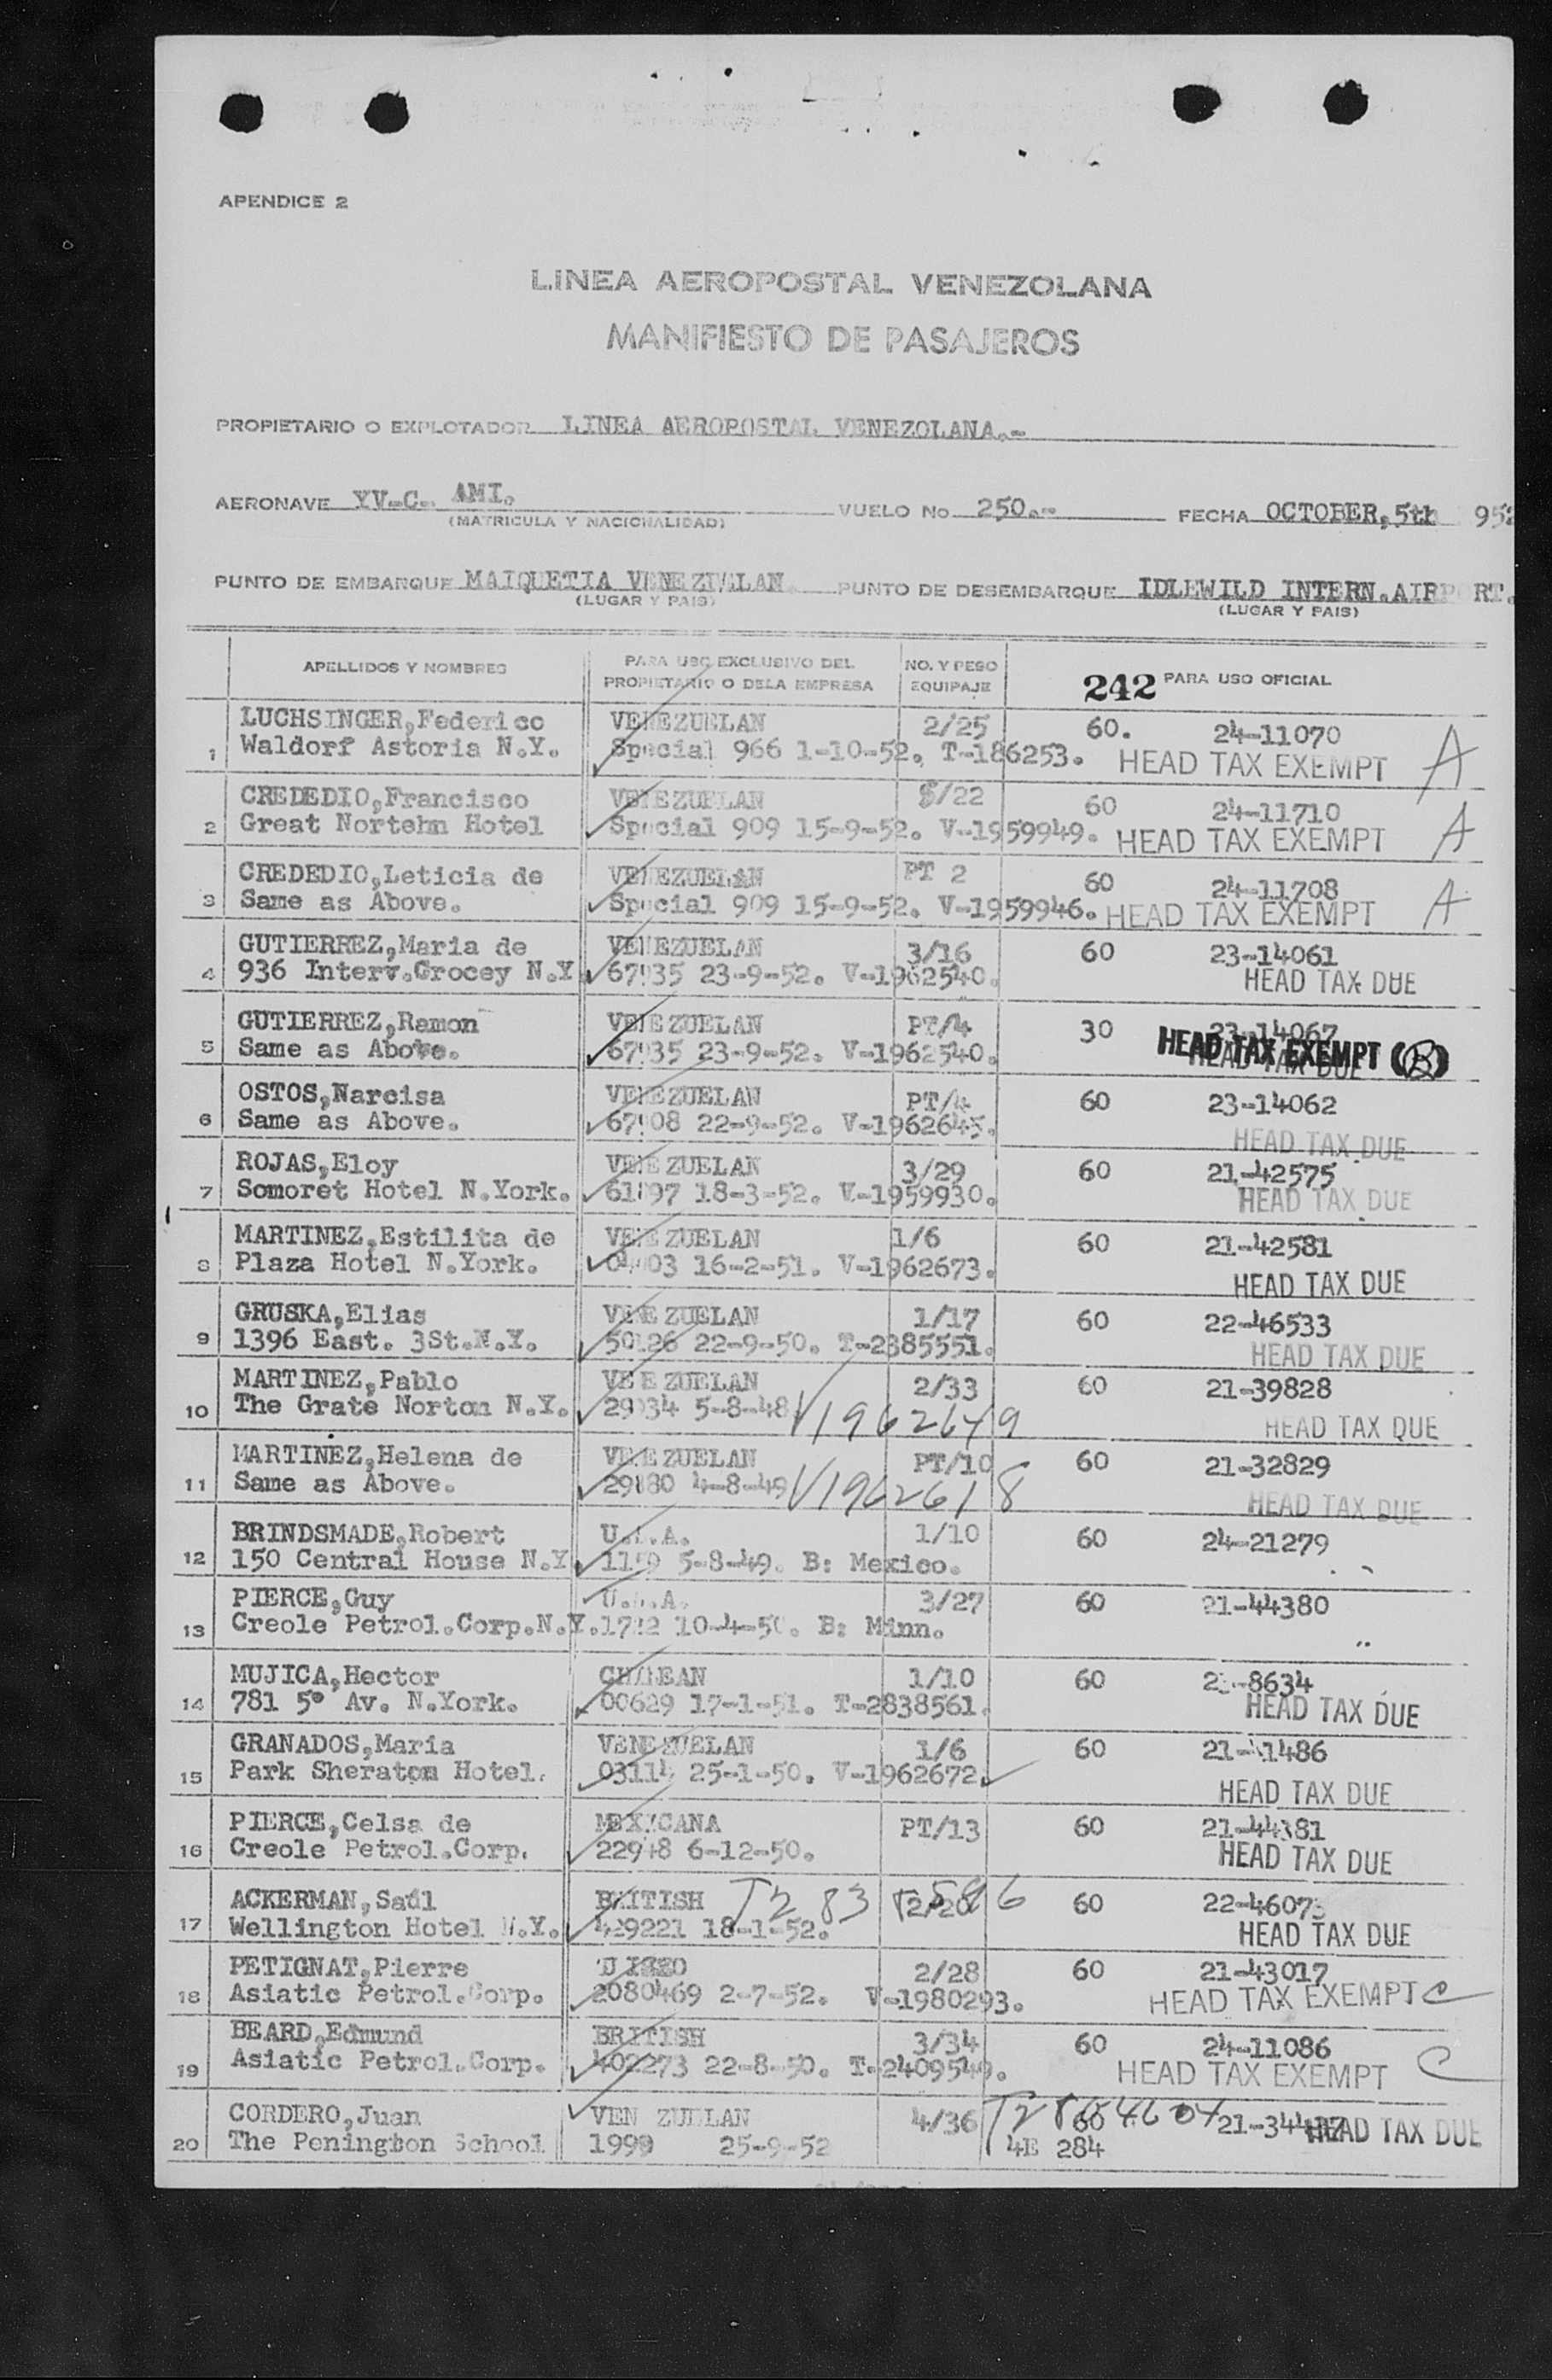 APENDICE 2
LINEA AEROPOSTAL VENEZOLANA
MANIFIESTO DE PASAJEROS
PROPIETARIO O EXPLOTADOR LINEA AEROPOSTAL VENEZOLANA.-
AERONAVE YV-C- AMI. VUELO No 250.-- FECHA OCTOBER,5th 95
(MATRICULA Y NACIONALIDAD)
PUNTO DE EMBARQUE MAIQUETIA PUNTO DE DESEMBARQUE IDLEWILD INTERN.AIRPORT.
(LUGAR Y PAIS) (LUGAR Y PAIS)
APELLIDOS Y NOMBRES PARA USO EXCLUSIVO DEL PROPIETARIO O DE LA EMPRESA NO. Y PESO EQUIPAJE 242 PARA USO OFICIAL
LUCHSINGER,Federico VENEZUELAN 2/25 60. 24-11070
1 Waldorf Astoria N.Y. Special 966 1-10-52. T-186253. HEAD TAX EXEMPT A
CREDEDIO,Francisco VENEZUELAN /22 60 24-11710
2 Great Nortehn Hotel Special 909 15-9-52. V-1959949. HEAD TAX EXEMPT A
CREDEDIO,Leticia de VENEZUELAN PT 2 60 24-11708
3 Same as Above. Special 909 15-9-52. V-1959946. HEAD TAX EXEMPT A
GUTIERREZ,Maria de VENEZUELAN 3/16 60 23-14061
4 936 Interv.Grocey N.Y. 67935 23-9-52. V-1962540. HEAD TAX DUE
GUTIERREZ,Ramon VENEZUELAN PT/4 30 23-14067
5 Same as Above. 67935 23-9-52. V-1962540. HEAD TAX EXEMPT (B) HEAD TAX DUE
OSTOS,Narcisa VENEZUELAN PT/4 60 23-14062
6 Same as Above. 67908 22-9-52. V-1962645. HEAD TAX DUE
ROJAS,Eloy VENEZUELAN 3/29 60 21-42575
7 Somoret Hotel N.York. 61897 18-3-52. V-1959930. HEAD TAX DUE
MARTINEZ,Estilita de VENEZUELAN 1/6 60 21-42581
8 Plaza Hotel N.York. 16-2-51. V-1962673. HEAD TAX DUE
GRUSKA,Elias VENEZUELAN 1/17 60 22-46533
9 1396 East. 3St.N.Y. 50126 22-9-50. T-2385551. HEAD TAX DUE
MARTINEZ,Pablo VENEZUELAN 2/33 60 21-39828
10 The Grate Norton N.Y. 29934 5-8-48 V1962649 HEAD TAX DUE
MARTINEZ,Helena de VENEZUELAN PT/10 60 21-32829
11 Same as Above. 29880 4-8-49 V1962618 HEAD TAX DUE
BRINDSMADE,Robert U.S.A. 1/10 60 24-21279
12 150 Central House N.Y. 5-8-49. B: Mexico.
PIERCE,Guy U.S.A. 3/27 60 21-44380
13 Creole Petrol.Corp.N.Y. 10-4-50. B: Minn.
MUJICA,Hector CHILEAN 1/10 60 -8634
14 781 5° Av. N.York. 00629 17-1-51. T-2838561. HEAD TAX DUE
GRANADOS,Maria VENEZUELAN 1/6 60 21-41486
15 Park Sheraton Hotel. 03114 25-1-50. V-1962672. HEAD TAX DUE
PIERCE,Celsa de MEXICANA PT/13 60 21-44381
16 Creole Petrol.Corp. 22948 6-12-50. HEAD TAX DUE
ACKERMAN,Saúl BRITISH 60 22-46073
17 Wellington Hotel N.Y. 429221 18-1-52. HEAD TAX DUE
PETIGNAT,Pierre 2/28 60 21-43017
18 Asiatic Petrol.Corp. 2080469 2-7-52. V-1980293. HEAD TAX EXEMPT C
BEARD,Edmund BRITISH 3/34 60 24-11086
19 Asiatic Petrol.Corp. 402273 22-8-50. T-2409549. HEAD TAX EXEMPT C
CORDERO,Juan VENEZUELAN 4/36 60 HEAD TAX DUE
20 The Penington School 1999 25-9-52 4E 284